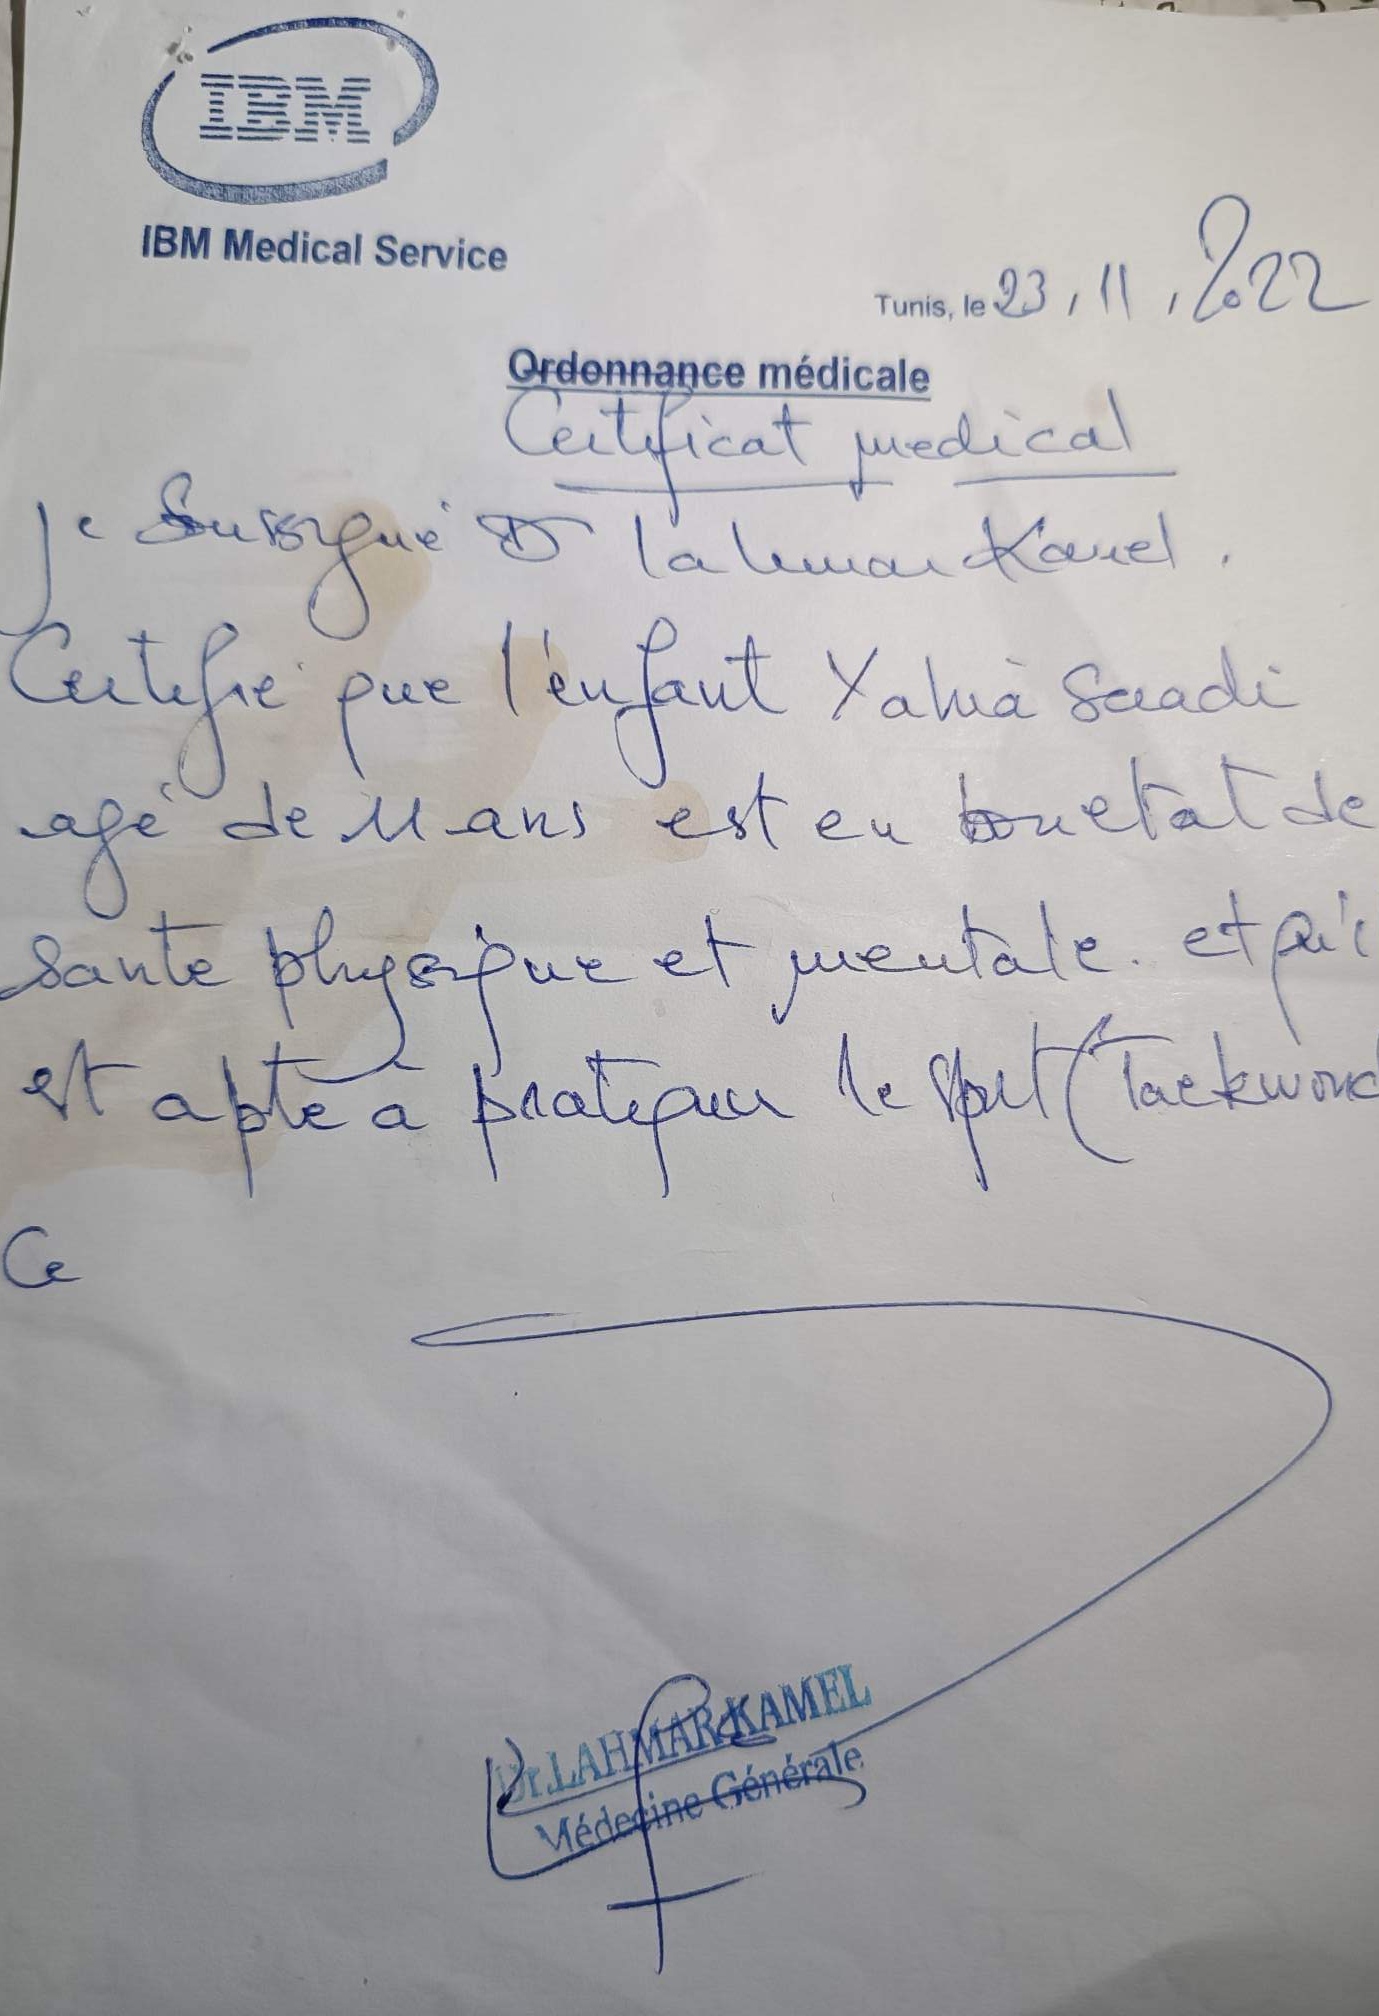 IBM
IBM Medical Service
Tunis, le 23, 11, 2022
Ordonnance médicale
Certificat medical
Je Sousigné Dr Lahmar Kamel.
Certifie que l'enfant Yahia Saadi
agé de 11 ans est en bon etat de
sante physique et mentale. et qu'i
est apte à pratiquer le sport (Taekwond
Ce
Dr.LAHMAR KAMEL
Médecine Générale